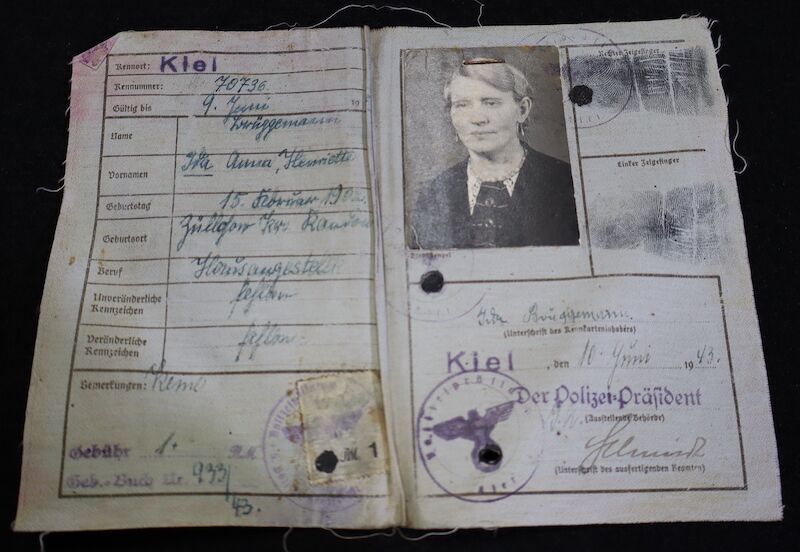 Kennort: Kiel
Kennummer: 70736
Gültig bis 9. Juni 19
Name Brüggemann
Vornamen Ida Anna, Henriette
Geburtstag 15. Februar 190
Geburtsort Züllchow Kr. Randow
Beruf Hausangestellte
Unveränderliche
Kennzeichen fehlen
Veränderliche
Kennzeichen fehlen
Bemerkungen: Keine
Gebühr 1.- R.M.
Geb.-Buch Nr. 933/
43.
RM. 1
Rechter Zeigefinger
Linker Zeigefinger
Dienststempel
Ida Brüggemann.
(Unterschrift des Kennkarteninhabers)
Kiel, den 10. Juni 1943.
Der Polizei-Präsident
(Ausstellende Behörde)
Schmidt
(Unterschrift des ausfertigenden Beamten)
Kiel